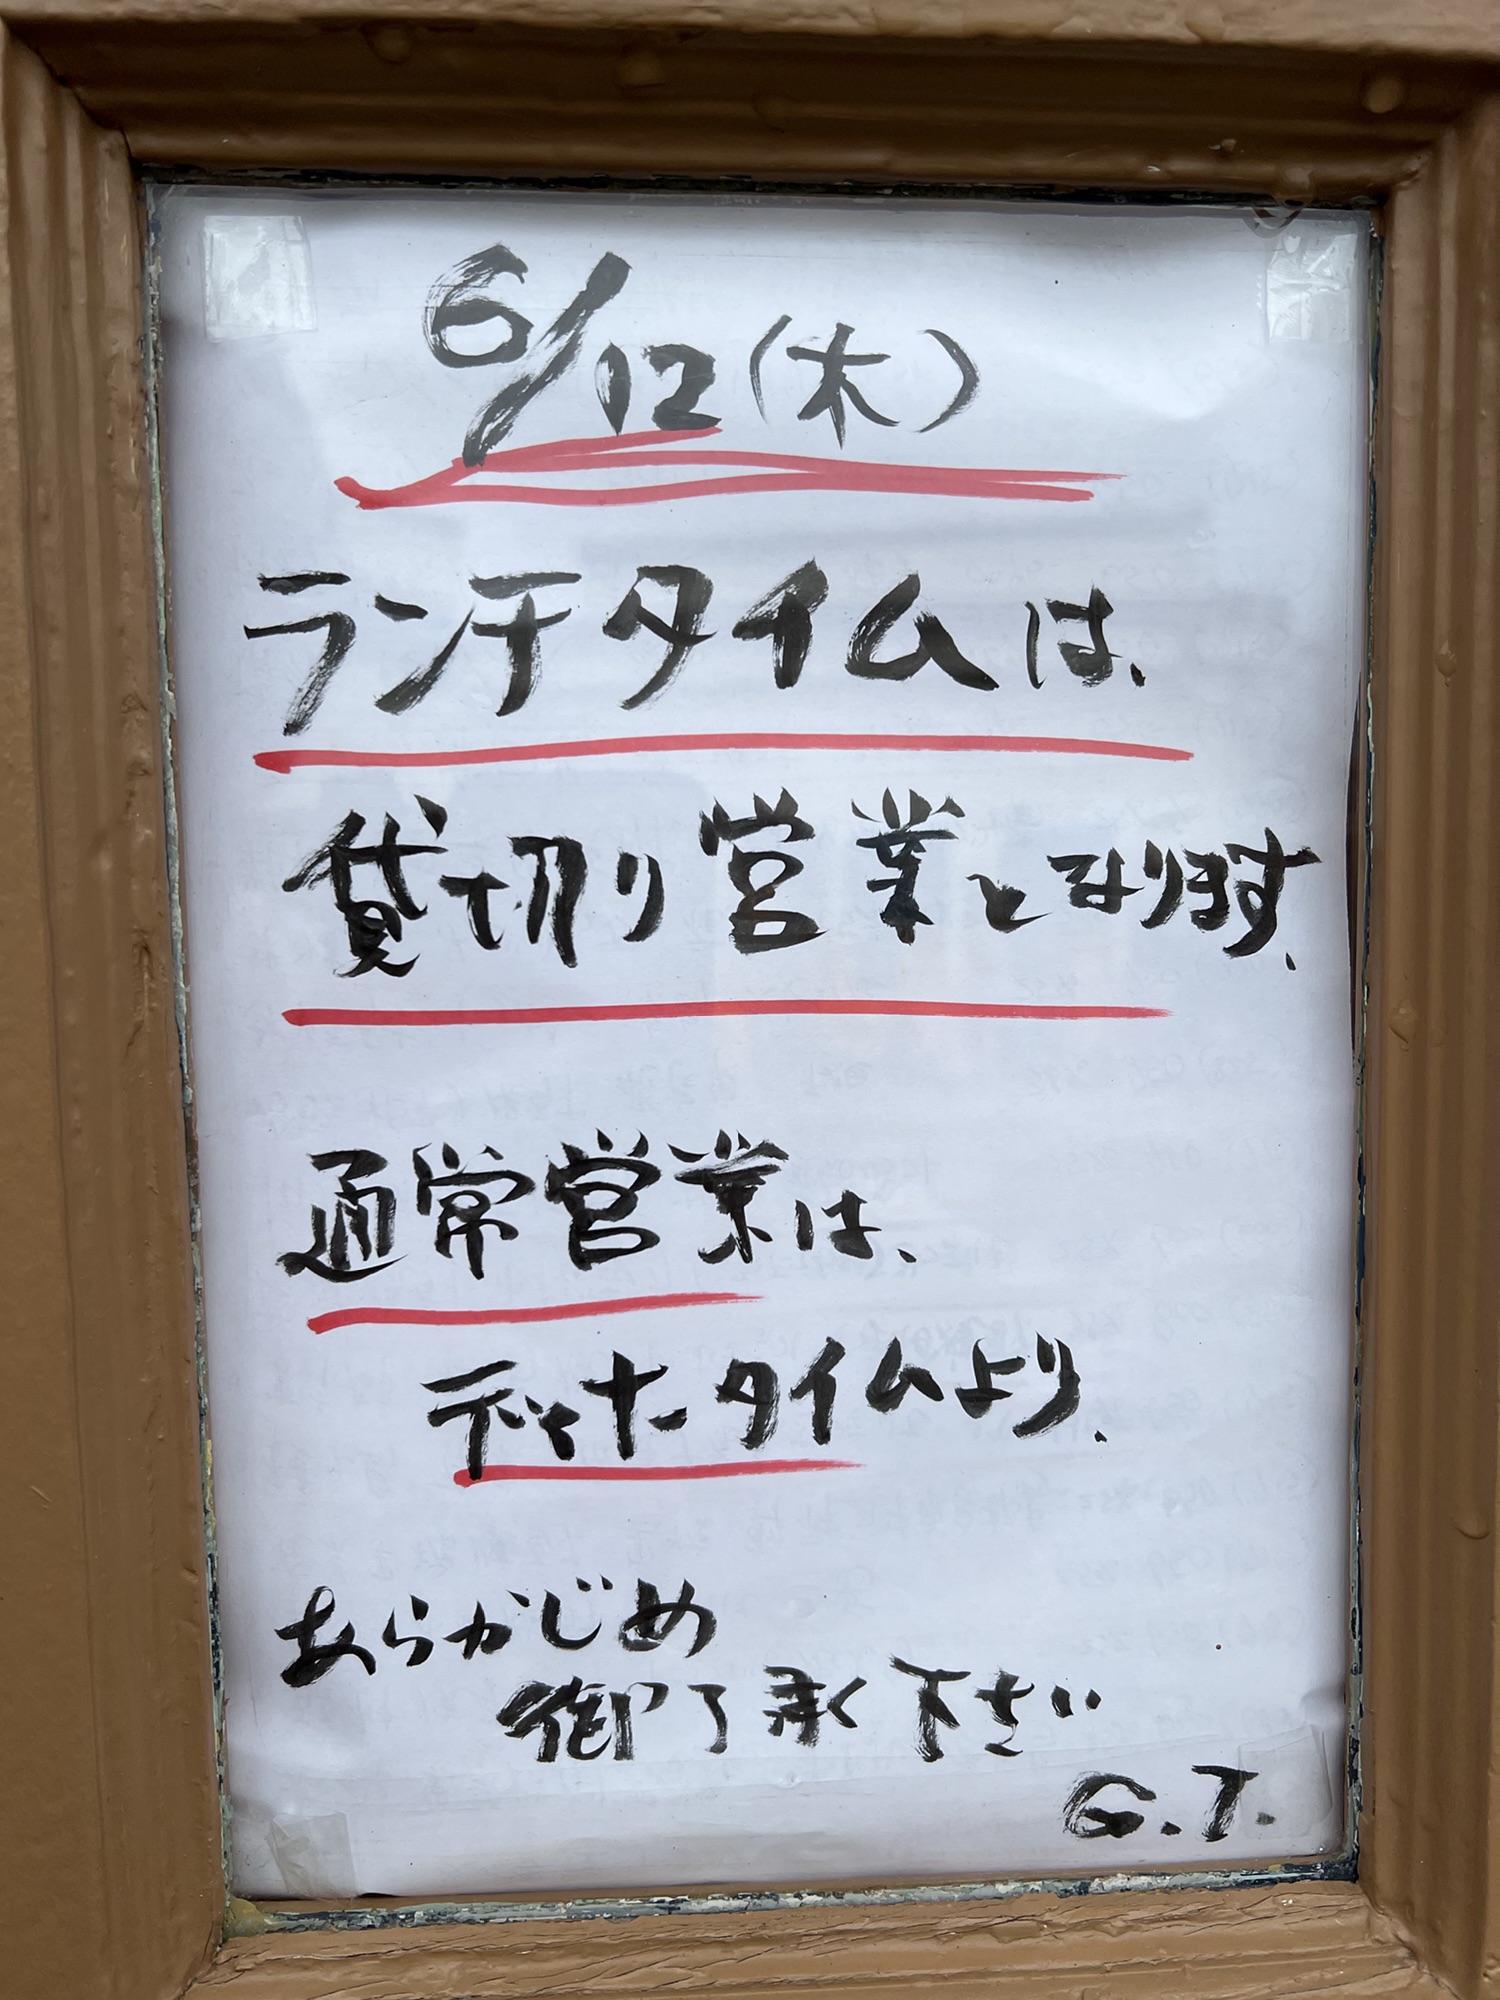 6/12(木)
ランチタイムは、
貸切り営業となります、
通常営業は、
ディナータイムより、
あらかじめ
御了承く下さい
G.T.